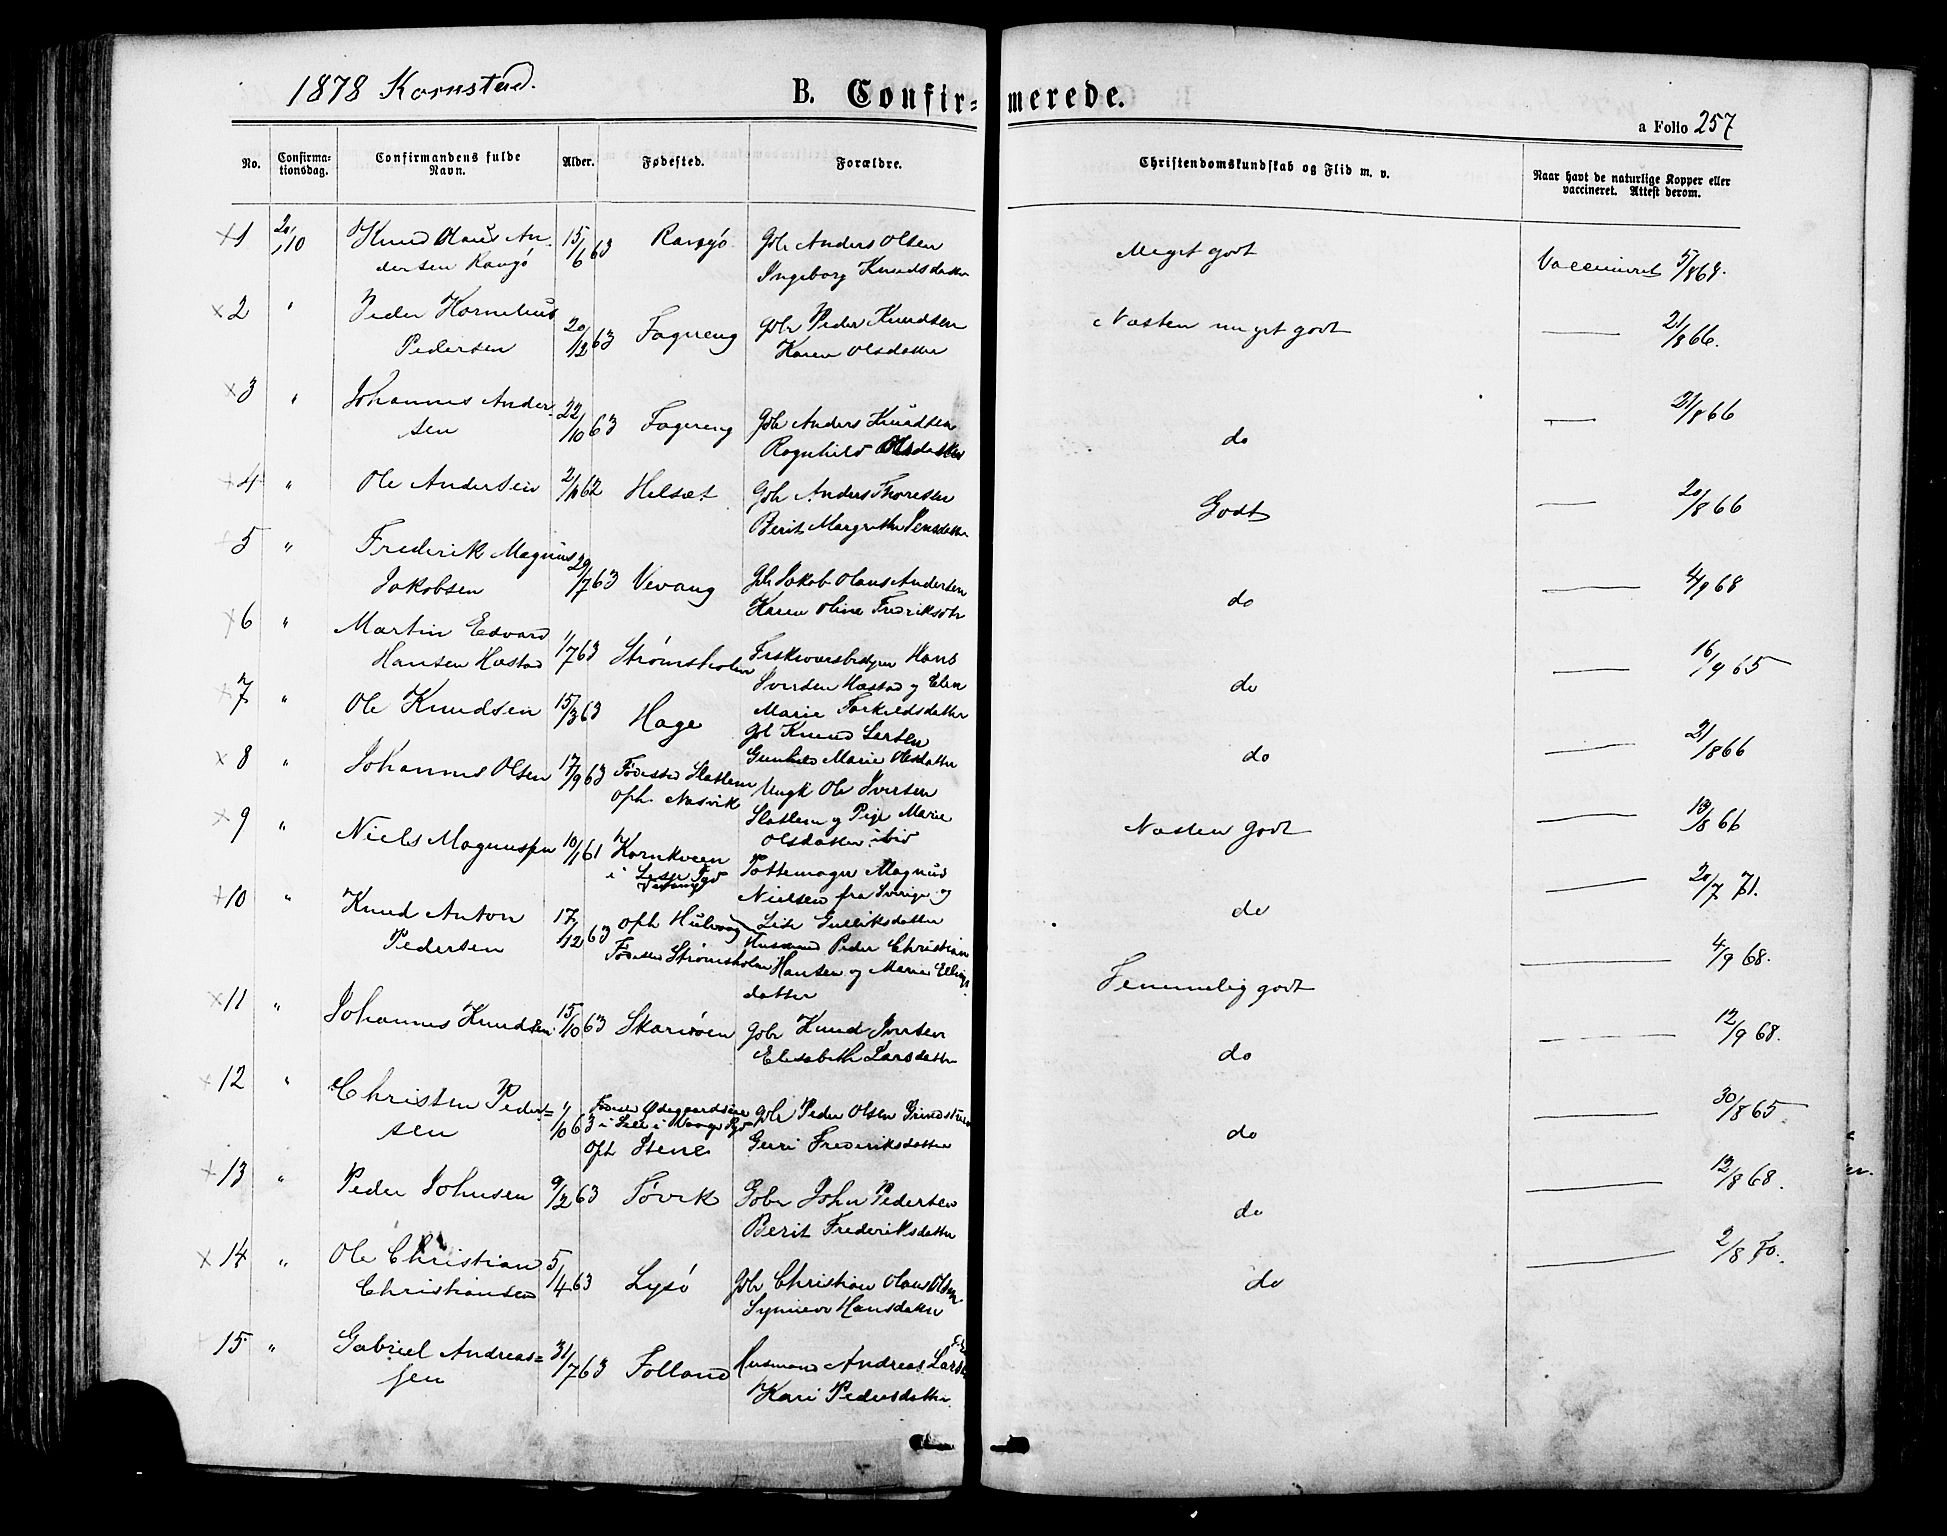 1878 Kornstad.
B. Confir- merede.
a Folio 257
No. Confirma-tionsdag. Confirmandens fulde Navn. Alder. Fødested. Forældre. Christendomskundskab og Flid m. v. Naar havt de naturlige Kopper eller vaccineret. Attest derom.
1 20/10 Knud Olaus An- 15/6 63 Rangø Gbr Anders Olsen Meget godt Vaccineret 5/8 68.
dersen Rangø Ingeborg Knudsdatter
2 " Peder Kornelius 20/12 63 Fagereng Gbr Peder Knudsen Næsten meget godt — 21/8 66.
Pedersen Karen Olsdatter
3 " Johannes Ander- 22/10 63 Fagereng Gbr Anders Knudsen do — 21/8 66
sen Ragnhild Olsdatter
4 " Ole Andersen 62 Helsæt Gbr Anders Thoresen Godt — 20/8 66
Berit Margrethe Jensdatter
5 " Frederik Magnus 29/7 63 Vevang Gbr Jakob Olaus Andersen do — 4/9 68
Jakobsen Karen Oline Fredriksdtr
6 " Martin Edvard 1/7 63 Strømsholm Hans do — 16/9 65
Hansen Hæstad Iversen Hæstad og Elen
Marie Torkildsdatter
7 " Ole Knudsen 15/3 63 Hage Gbr Knud Larsen do — 21/8 66
Gunhild Marie Olsdatter
8 " Johannes Olsen 17/9 63 Fødested Slatlem Ungk Ole Iversen Næsten godt — 13/8 66
oph. Næsvik Slatlem og Pige Marie
Olsdatter ibid
9 " Niels Magnussen 10/1 61 Kornkveen Pottemager Magnus do — 20/7 71.
i Nielsen fra Sverige og
Lise Gulliksdatter
10 " Knud Anton 17/12 63 oph Hulvaag Husmand Peder Christian Temmelig godt — 4/9 68.
Pedersen Fødested Strømsholm Hansen og Marie Ellings-
datter
11 " Johannes Knudsen 15/10 63 Skarsøen Gbr Knud Iversen do — 12/9 68.
Elisabeth Larsdatter
12 " Christen Peder- 1/10 63 Fødested Ødegaardsære Gbr Peder Olsen do — 30/8 65
sen oph Stene Guri Frederiksdatter
13 " Peder Johnsen 9/2 63 Søvik Gbr John Pedersen do — 12/8 68.
Berit Frederiksdatter
14 " Ole Christian 5/4 63 Lysø Gbr Christian Olaus Olsen do — 2/8 70.
Christiansen Synnøve Hansdatter
15 " Gabriel Andreas- 31/7 63 Folland Husmand Andreas Larsen
sen Kari Pedersdatter